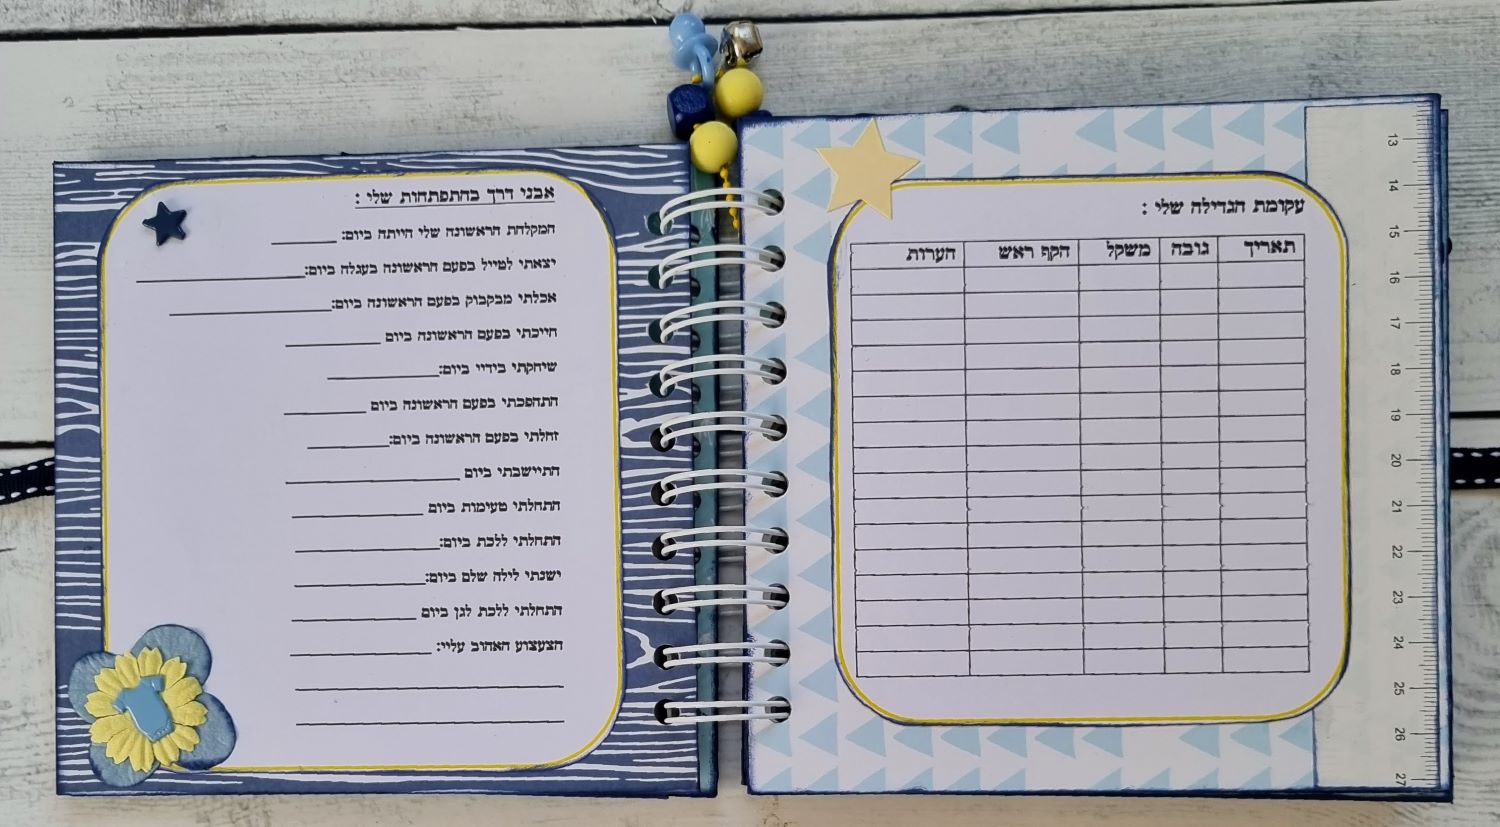 אבני דרך בהתפתחות שלי :
המקלחת הראשונה שלי הייתה ביום: ________
יצאתי לטייל בפעם הראשונה בעגלה ביום:____________________
אכלתי מבקבוק בפעם הראשונה ביום:____________________
חייכתי בפעם הראשונה ביום ____________
שיחקתי בידיי ביום:______________
התהפכתי בפעם הראשונה ביום __________
זחלתי בפעם הראשונה ביום:__________
התיישבתי ביום ______________________
התחלתי טעימות ביום ________________
התחלתי ללכת ביום:__________________
ישנתי לילה שלם ביום:________________
התחלתי ללכת לגן ביום ________________
הצעצוע האהוב עליי: __________________
עקומת הגדילה שלי :
תאריך גובה משקל הקף ראש הערות
13
14
15
16
17
18
19
20
21
22
23
24
25
26
27